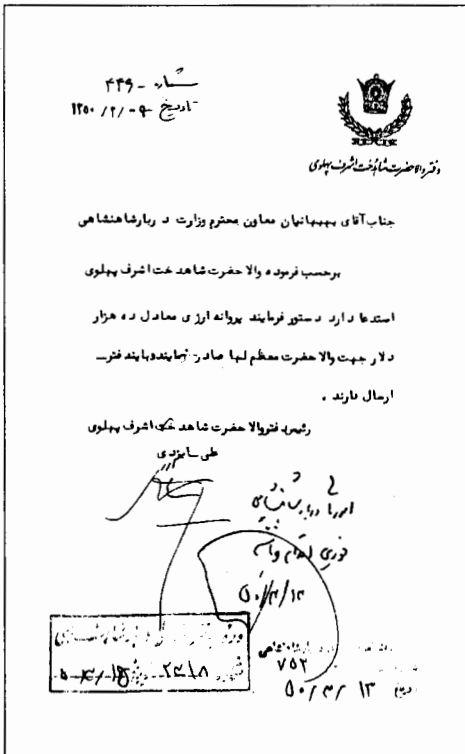 شماره - ۴۴۶
تاریخ ۹-/۲/۱۳۵۰
دفتر والاحضرت شاهدخت اشرف پهلوی
جناب آقای بهبهانیان معاون محترم وزارت دربار شاهنشاهی
برحسب فرموده والا حضرت شاهدخت اشرف پهلوی
استدعا دارد دستور فرمایند پروانه ارزی معادل ده هزار
دلار جهت والا حضرت معظم لها صادر نمایند و بایند فتر
ارسال دارند .
رئیس دفتر والا حضرت شاهدخت اشرف پهلوی
علی ایزدی
فوری اقدام
۵۰/۳/۱۳
۲۴۱۸
۷۵۲
۵۰/۳/۱۳